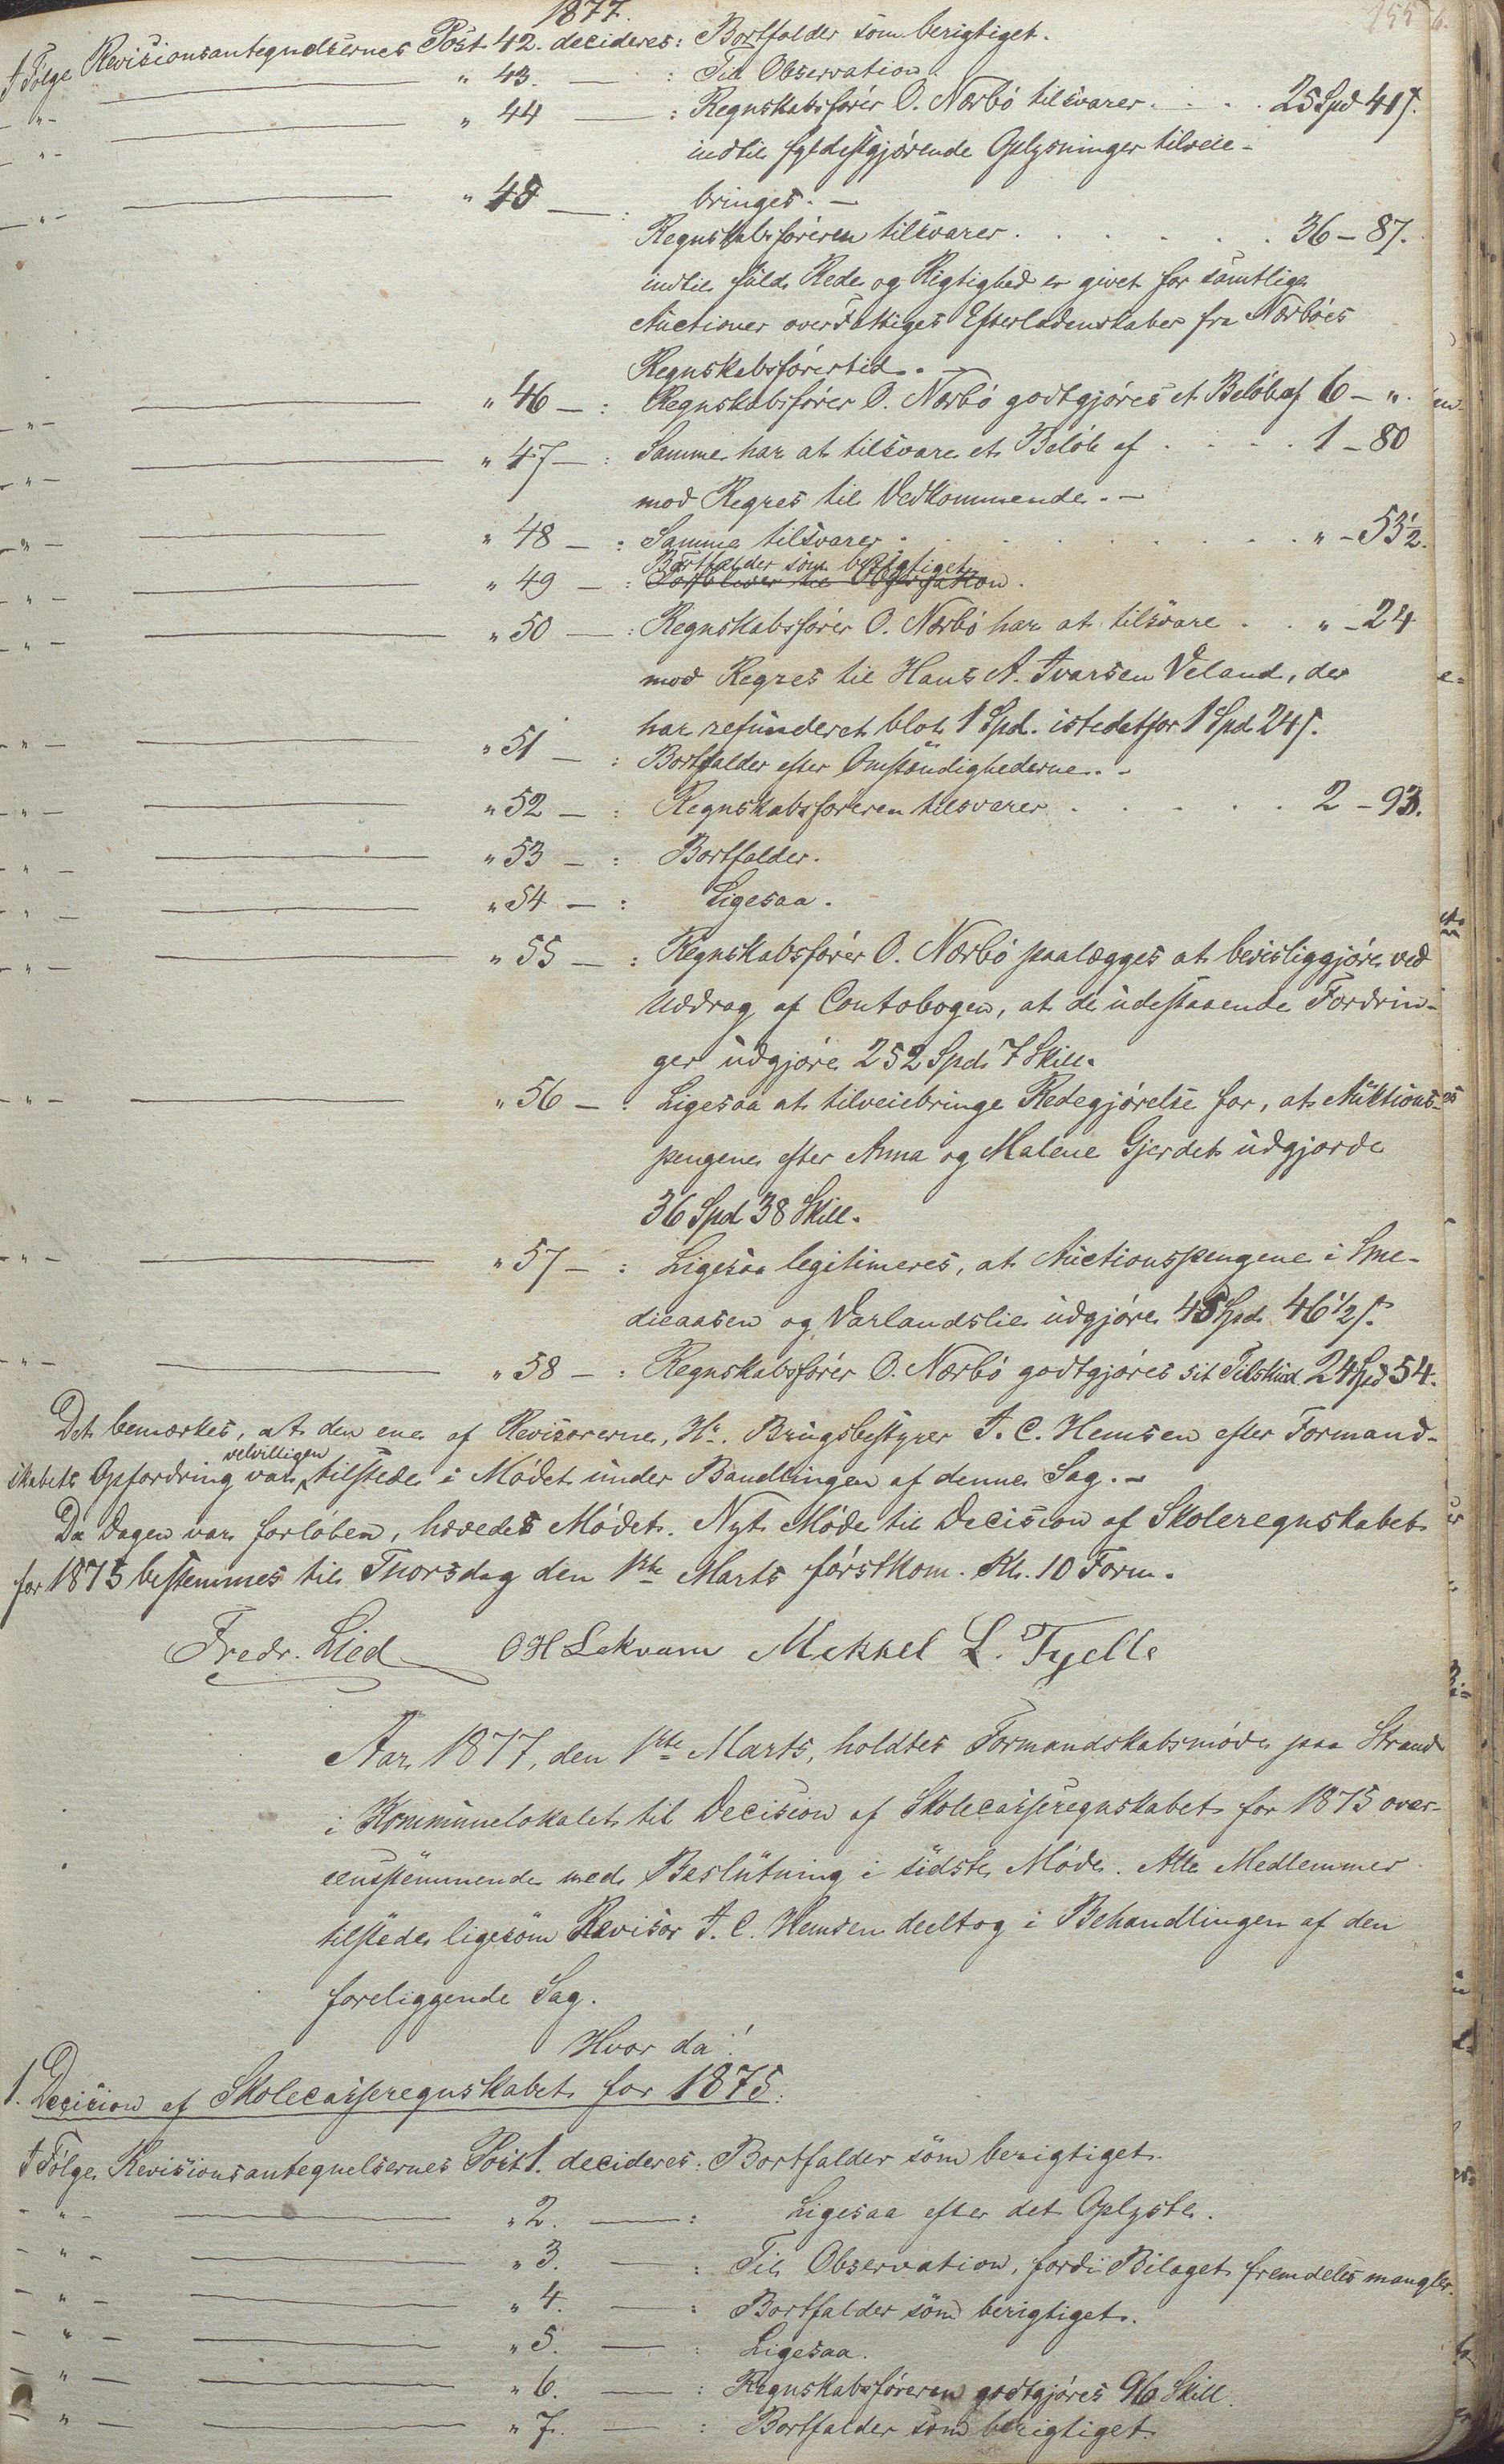 1877.
155 6.
I Følge Revisionsantegnelsernes Post 42. decideres: Bortfalder som berigtiget.
" 43. — : Til Observation.
" 44 — : Regnskabsfører O. Nærbö tilsvarer . . . 25 Spd 41 s.
indtil fyldestgjørende Oplysninger tilveie-
bringes. —
" 45 — : Regnskabsføreren tilsvarer . . . . . . 36 – 87.
indtil fuld Rede og Rigtighed er givet for samtlige
Auctioner over Fattiges Efterladenskaber fra Nærböes
Regnskabsførertid. —
" 46 — : Regnskabsfører O. Nærbö godtgjøres et Beløb af 6 – ".
" 47 — : Samme har at tilsvare et Beløb af . . . . 1 – 80
mod Regres til Vedkommende. —
" 48 — : Samme tilsvarer . . . . . . . . " – 53½.
Bortfalder som berigtiget.
" 49 — : Forbliver til Observation.
" 50 — : Regnskabsfører O. Nærbö har at tilsvare . . " – 24
mod Regres til Hans A. Ivarsen Veland, der
har refunderet blot 1 Spd. istedetfor 1 Spd 24 s.
" 51 — : Bortfalder efter Omstændighederne. —
" 52 — : Regnskabsføreren tilsvarer . . . . . 2 – 93.
" 53 — : Bortfalder.
" 54 — : Ligesaa.
" 55 — : Regnskabsfører O. Nærbö paalægges at bevisliggjøre ved
Uddrag af Contobogen, at de udestaaende Fordrin-
ger udgjøre 252 Spd. 7 Skill.
" 56 — : Ligesaa at tilveiebringe Redegjørelse for, at Auktions-
pengene efter Anna og Malene Gjerdet udgjorde
36 Spd 38 Skill.
" 57 — : Ligesaa legitimeres, at Auctionspengene i Sme-
dieaasen og Varlandslie udgjøre 45 Spd. 46½ s.
" 58 — : Regnskabsfører O. Nærbö godtgjøres sit Tilskud 24 Spd 54.
Det bemærkes, at den ene af Revisorerne, Hr. Brugsbestyrer I. C. Hemsen efter Formand-
velvilligen
skabets Opfordring var tilstede i Mødet under Bandlingen af denne Sag. —
Da Dagen var forløben, hævedes Mødet. Nyt Møde til Decision af Skoleregnskabet
for 1875 bestemmes til Thorsdag den 1ste Marts førstkom. Kl. 10 Form.
Fredr. Lied OH Lekvam Mekkel L. Tyelle
Aar 1877, den 1ste Marts, holdtes Formandskabsmøde paa Strand
i Kommunelokalet til Decision af Skolecasseregnskabet for 1875 over-
eensstemmende med Beslutning i sidste Møde. Alle Medlemmer
tilstede ligesom Revisor I. C. Hemsen deeltog i Behandlingen af den
foreliggende Sag.
Hvor da!
1. Decision af Skolecasseregnskabet for 1875.
I Følge Revisionsantegnelsernes Post 1. decideres: Bortfalder som berigtiget.
" 2. — : Ligesaa efter det Oplyste.
" 3. — : Til Observation, fordi Bilaget fremdeles mangler.
" 4. — : Bortfalder som berigtiget.
" 5. — : Ligesaa.
" 6. — : Regnskabsføreren godtgjøres 96 Skill.
" 7. — : Bortfalder som berigtiget.